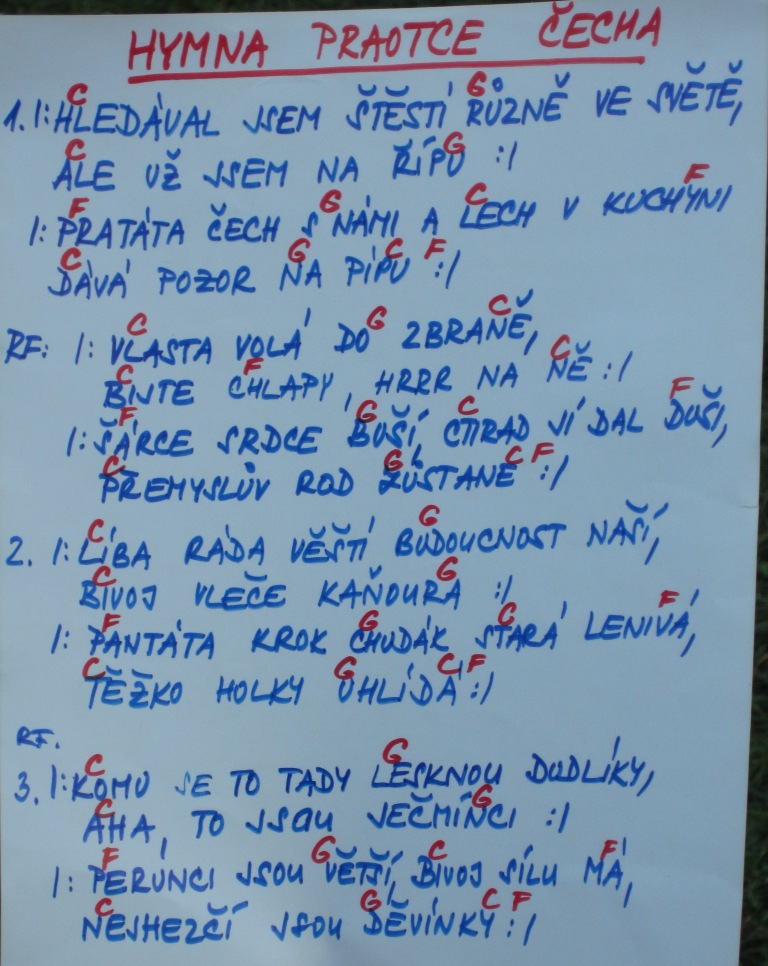 HYMNA PRAOTCE ČECHA
C G
1. I: HLEDÁVAL JSEM ŠTĚSTÍ RŮZNĚ VE SVĚTĚ,
C G
ALE UŽ JSEM NA ŘÍPU :/
F G C F
I: PRATÁTA ČECH S NÁMI A LECH V KUCHYNI
C G C F
DÁVÁ POZOR NA PÍPU :/
C G C
RF: I: VLASTA VOLÁ DO ZBRANĚ,
C F C
BIJTE CHLAPY, HRRR NA NĚ :/
F G C F
I: ŠÁRCE SRDCE BUŠÍ, CTIRAD JÍ DAL DUŠI,
C G C F
PŘEMYSLŮV ROD ZŮSTANE :/
C G
2. I: LÍBA RÁDA VĚŠTÍ BUDOUCNOST NAŠÍ,
C G
BIVOJ VLEČE KAŇOURA :/
F G C F
I: PANTÁTA KROK CHUDÁK STARÁ LENIVÁ,
C G C F
TĚŽKO HOLKY UHLÍDÁ :/
RF.
C G
3. I: KOMU SE TO TADY LESKNOU DUDLÍKY,
C G
AHA, TO JSOU JEČMÍNCI :/
F G C F
I: PERUNCI JSOU VĚTŠÍ, BIVOJ SÍLU MÁ,
C G C F
NEJHEZČÍ JSOU DĚVÍNKY :/